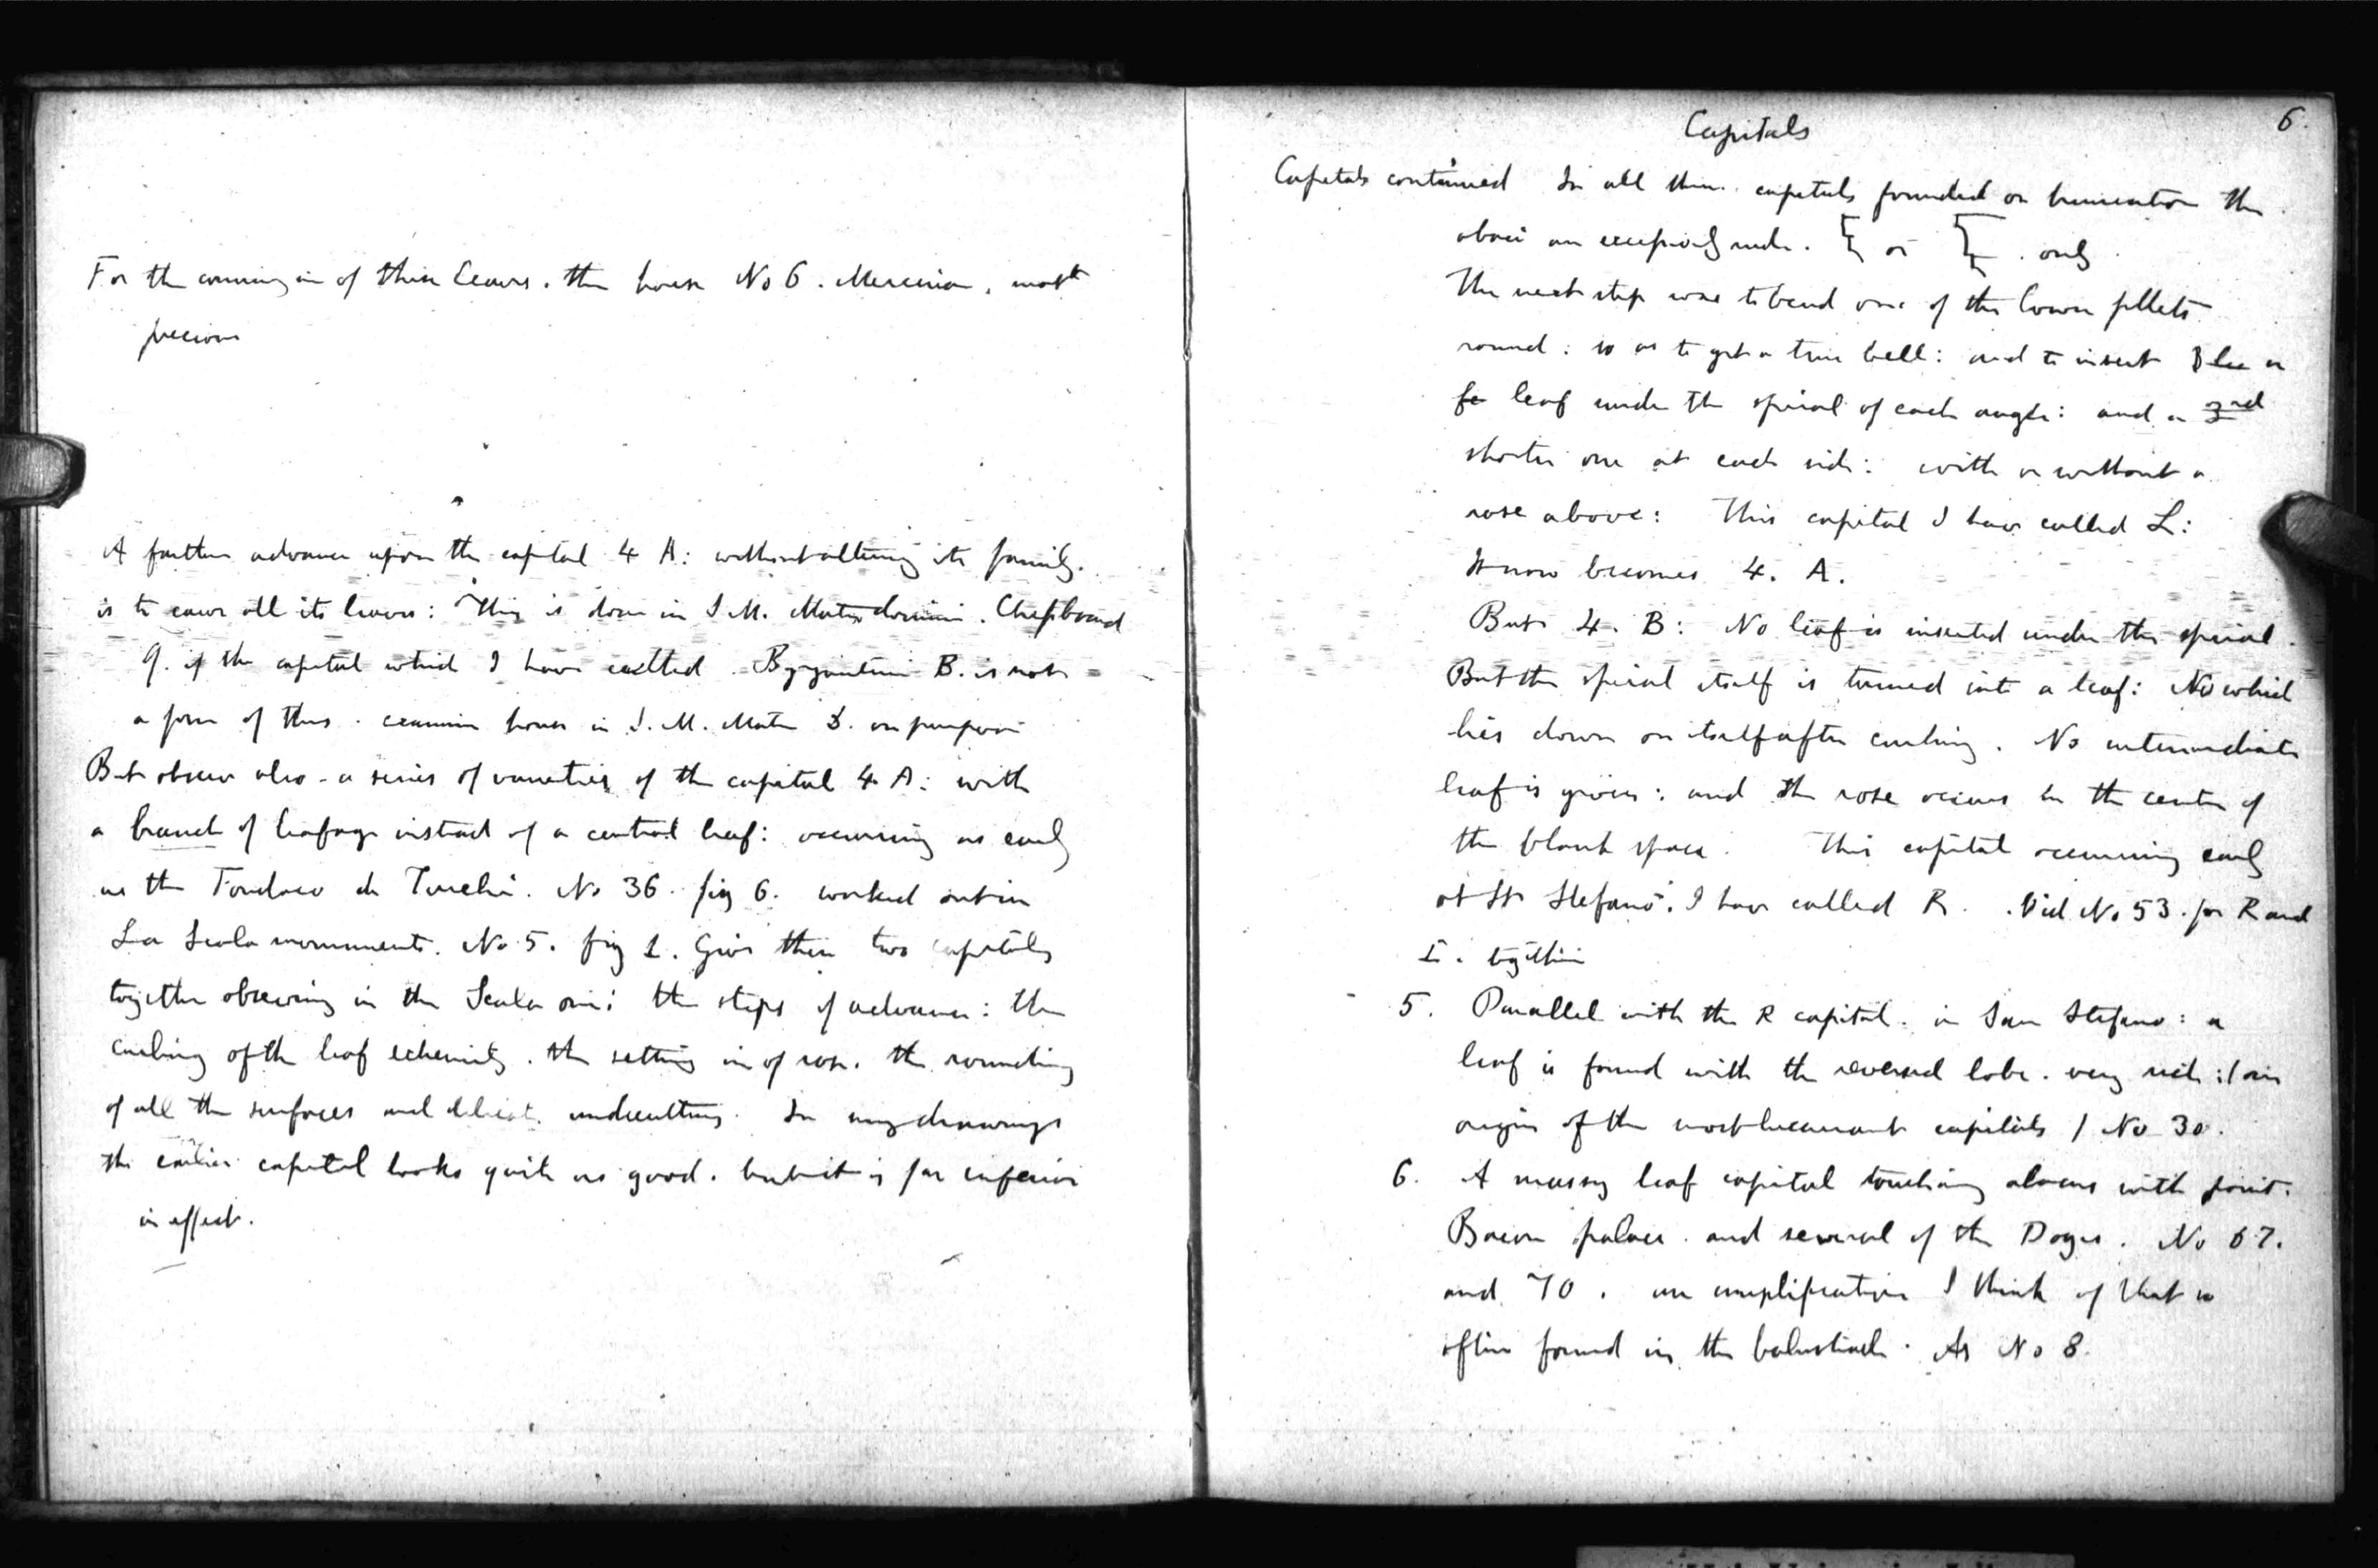 For the coming in of these leaves. the house No 6. Merceria, most
precious
A farther advance upon the capital 4 A: without altering its family.
is to curve all its leaves: This is done in S M. Mater domini. Chessboard
q. if the capital which I have called Byzantine B. is not
a form of this. examine house in S. M. Mater D. on purpose
But observe also a series of varieties of the capital 4 A: with
a branch of leafage instead of a central leaf: occurring as early
as the Fondaco de Turchi. No 36. fig 6. worked out in
La Scala monument. No 5. fig 1. Give these two capitals
together observing in the Scala one: the steps of advance: the
curling of the leaf extremity. the setting in of rose. the rounding
of all the surfaces and delicate undercutting. In my drawings
the earlier capital looks quite as good. but it is far inferior
in effect.
Capitals
6.
Capitals continued In all these capitals founded on truncation the
abaci are excessively rude. or only
The next step was to bend one of the lower fillets
round: so as to get a true bell: and to insert a
leaf under the spiral of each angle: and a 3rd
shorter one at each side: with or without a
rose above: This capital I have called L:
It now becomes 4. A.
But 4. B: No leaf is inserted under the spiral.
But the spiral itself is turned into a leaf: No which
lies down on itself after curling. No intermediate
leaf is given: and the rose occurs in the center of
the blank space. This capital occurring early
at St Stefano. I have called R. Vid. No 53. for R and
I. together
5. Parallel with the R capital. in San Stefano: a
leaf is found with the reversed lobe. very rich:
origin of the capitals / No 30.
6. A massy leaf capital touching abacus with point.
palace. and several of the Doges. No 67.
and 70. an amplification I think of that so
often found in the balustrade. As No 8.